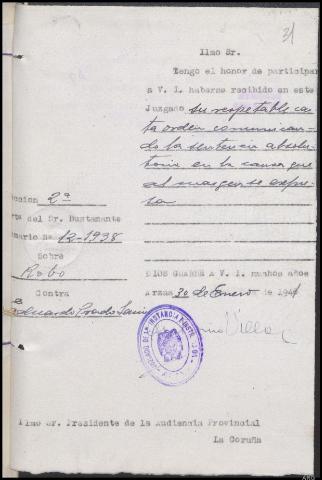 31
Ilmo Sr.
Tengo el honor de participar
a V. I. haberse recibido en este
Juzgado su respetable car
ta orden comunican
do la sentencia absolu
toria en la causa que
al margen se expre
sa
ccion 2ª
rta del Sr. Bustamante
mario nº 12-1938
Sobre
Robo
Contra
Eduardo Prado
DIOS GUARDE A V. I. muchos años
Arzua 30 de Enero de 1941
Villa
JUZGADO DE 1ª INSTANCIA
Ilmo Sr. Presidente de la Audiencia Provincial
La Coruña